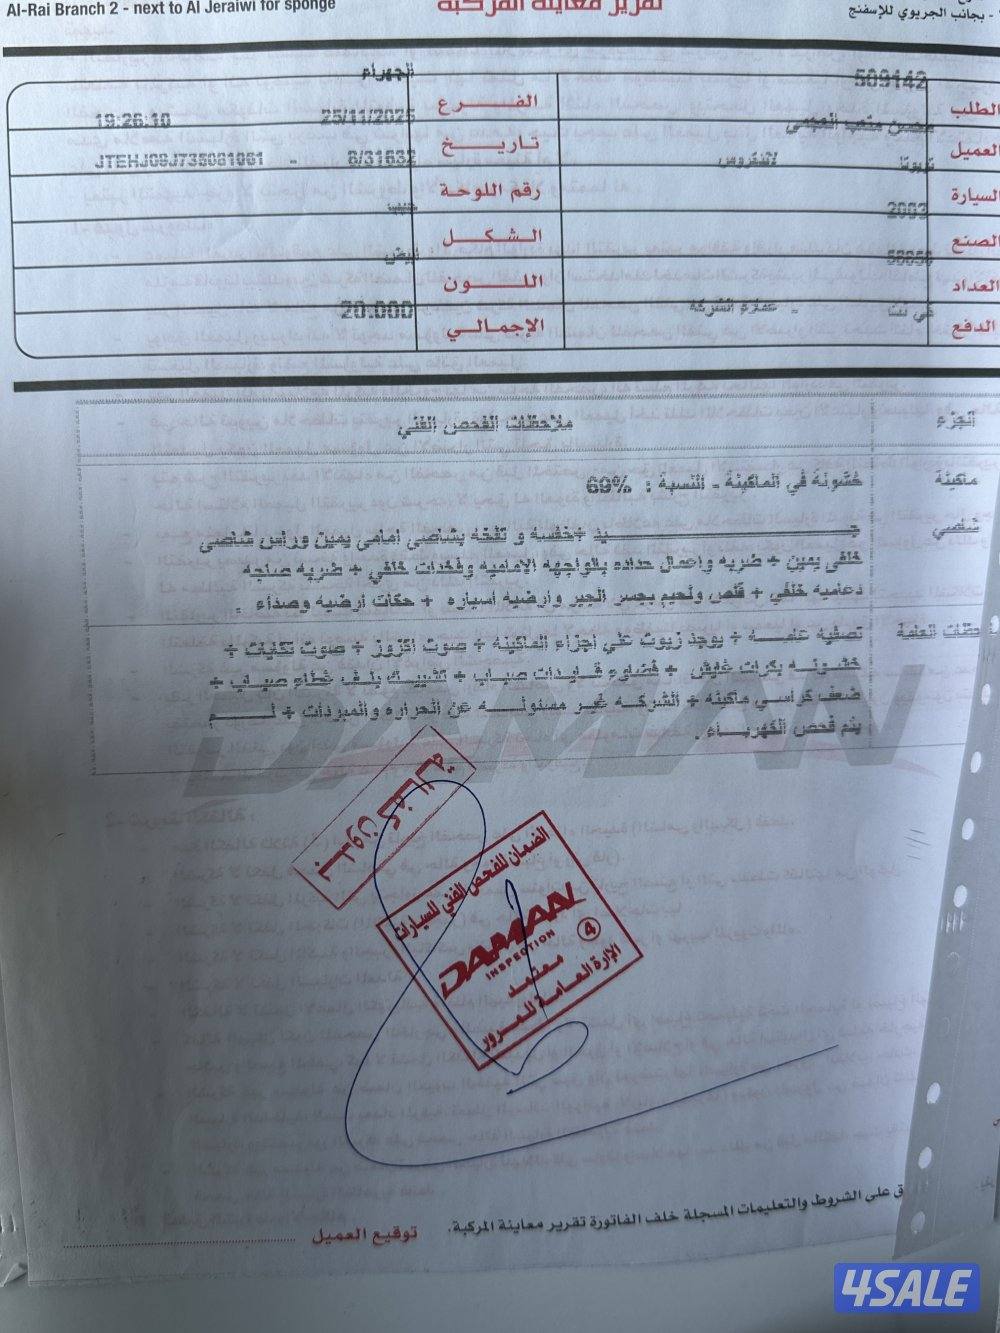 Al-Rai Branch 2 - next to Al Jeraiwi for sponge
- بجانب الجريوي للإسفنج
تقرير معاينة المركبة
الطلب 509142 الفـــرع الجهراء
العميل محسن متعب العجمي تاريـخ 25/11/2025 19:26:10
السيارة تويوتا لاندكروس رقم اللوحة 8/31632 - JTEHJ09J735061061
الصنع 2003 الشكل جيب
العداد اللـــون ابيض
الدفع كي نت - الشركه الإجمالي 20.000
الجزء ملاحظات الفحص الفني
ماكينة خشونة في الماكينة - النسبة : 69%
شاصي جـــيد +خفسه و تفخه بشاصي امامي يمين وراس شاصي
خلفي يمين + ضربه واعمال حداده بالواجهه الاماميه وفخدات خلفي + ضربه صاجه
دعاميه خلفي + قلص ولحيم بجسر الجير وارضيه اسياره + حكات ارضيه وصداء .
العامة تصفيه عامـــه + يوجد زيوت على اجزاء الماكينه + صوت اكزوز + صوت تكتيات +
خشونـــه بكرات قايش + قيدات صبـاب + بلـف غطاء صبـاب +
ضعف كراسي ماكينه + الشركـه غيـر مسئولـــه عن الحراره والمبردات + لـــم
يتم فحص الكهربـــاء .
DAMAN
بدون كفالة
الضمان للفحص الفني للسيارات
DAMAN
INSPECTION
4
معتمد
الإدارة العـامـة للـمرور
على الشروط والتعليمات المسجلة خلف الفاتورة تقرير معاينة المركبة.
توقيع العميل
4SALE